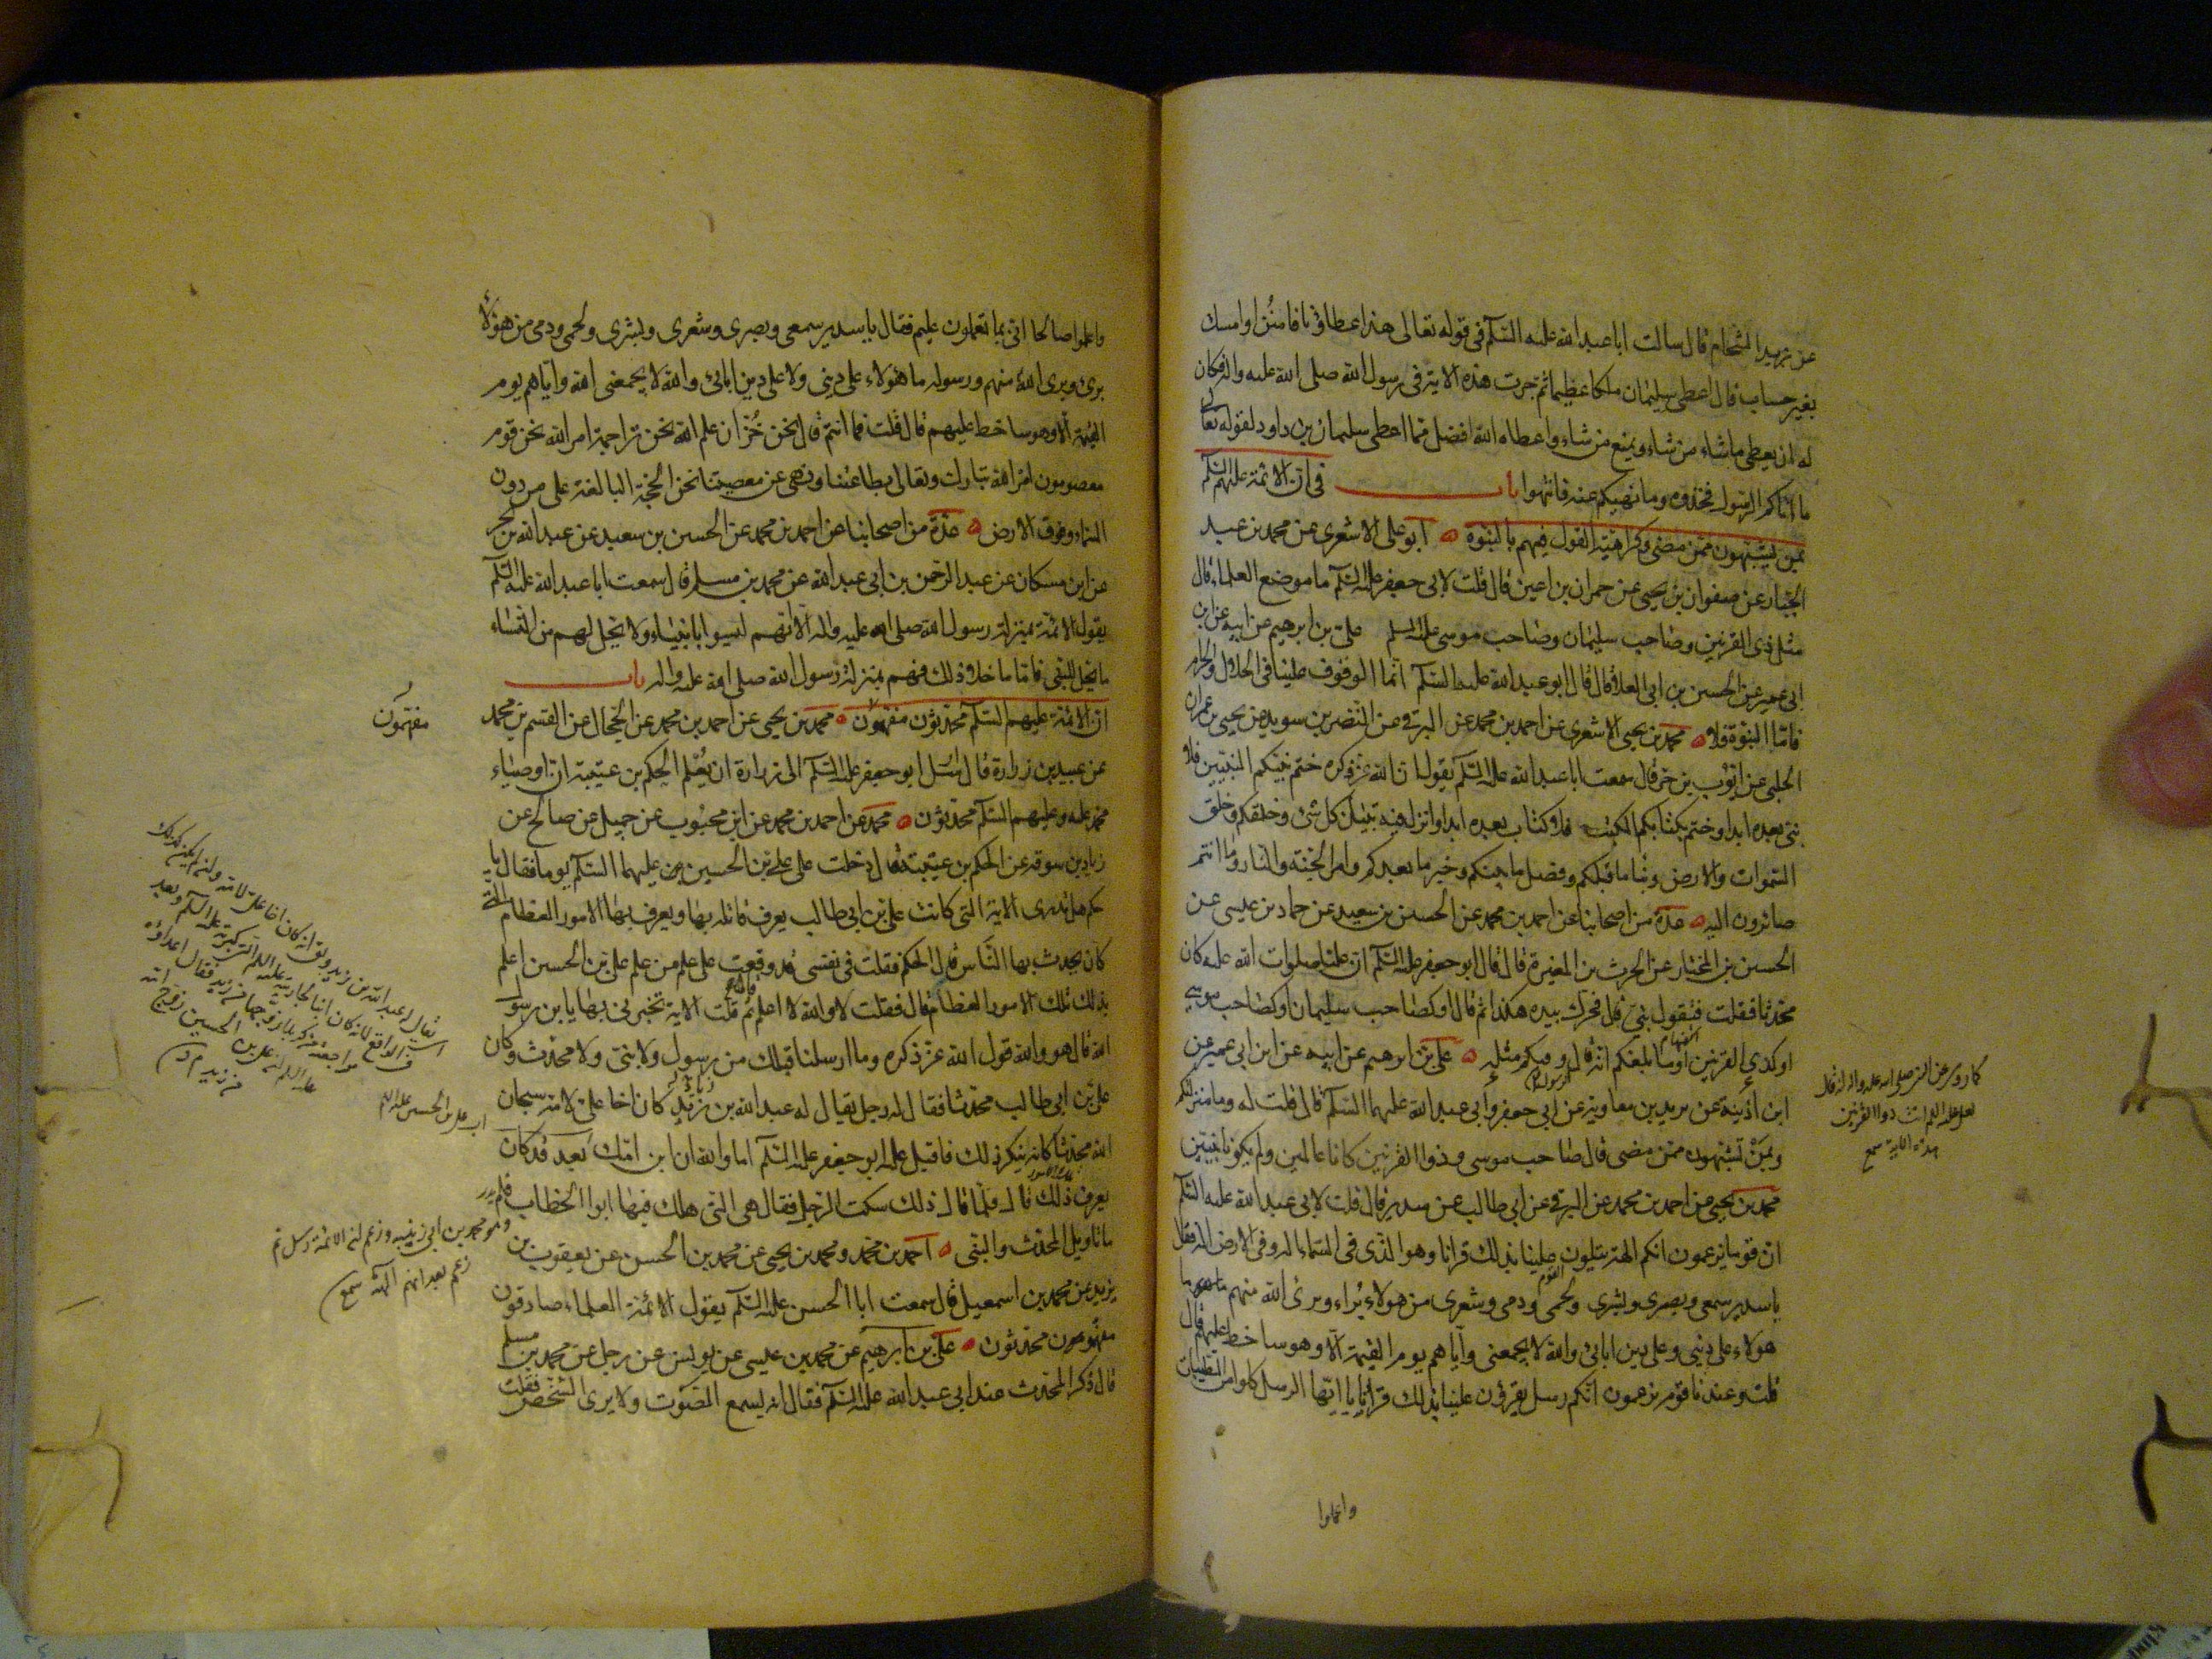 عن زيد الشحام قال سالت ابا عبد الله عليه السلم في قوله تعالى هذا عطاؤنا فامنن او امسك
بغير حساب قال اعطى سليمان ملكا عظيما ثم جرت هذه الاية في رسول الله صلى الله عليه واله فكان
له ان يعطى ما شاء من شاء ويمنع من شاء واعطاه الله افضل مما اعطى سليمان بن داود لقوله تعالى
ما اتاكم الرسول فخذوه وما نهيكم عنه فانتهوا باب في ان الائمة عليهم السلم
بمن يشبهون ممن مضى وكراهية القول فيهم بالنبوة ابو على الاشعرى عن محمد بن عبد
الجبار عن صفوان بن يحيى عن حمران بن اعين قال قلت لابى جعفر عليه السلم ما موضع العلماء قال
مثل ذى القرنين وصاحب سليمان وصاحب موسى عليه السلم على بن ابرهيم عن ابيه عن ابن
ابى عمير عن الحسين بن ابى العلا قال قال ابو عبد الله عليه السلم انما الوقوف علينا فى الحلال والحرام
فاما النبوة فلا محمد بن يحيى الاشعرى عن احمد بن محمد عن البرقى عن النضر بن سويد عن يحيى بن عمران
الحلبى عن ايوب بن حر قال سمعت ابا عبد الله عليه السلم يقول ان الله عز ذكره ختم بنبيكم النبيين فلا
نبى بعده ابدا وختم بكتابكم الكتب فلا كتاب بعده ابدا وانزل فيه تبيان كل شئ وخلقكم وخلق
السموات والارض ونبا ما قبلكم وفصل ما بينكم وخبر ما بعدكم وامر الجنة والنار وما انتم
صائرون اليه عدة من اصحابنا عن احمد بن محمد عن الحسين بن سعيد عن حماد بن عيسى عن
الحسين بن المختار عن الحرث بن المغيرة قال قال ابو جعفر عليه السلم ان عليا صلوات الله عليه كان
محدثا فقلت فتقول نبى قال فحرك بيده هكذا ثم قال او كصاحب سليمان او كصاحب موسى
او كذى القرنين اوما بلغكم انه قال وفيكم مثله على بن ابرهيم عن ابيه عن ابن ابى عمير عن
ابن اذينة عن بريد بن معاوية عن ابى جعفر وابى عبد الله عليهما السلم قال قلت له وما منزلتكم
وبمن تشبهون ممن مضى قال صاحب موسى وذو القرنين كانا عالمين ولم يكونا نبيين
محمد بن يحيى عن احمد بن محمد عن البرقى عن ابى طالب عن سدير قال قلت لابى عبد الله عليه السلم
ان قوما يزعمون انكم الهة يتلون علينا بذلك قرانا وهو الذى فى السماء اله وفى الارض اله فقال
يا سدير سمعى وبصرى وبشرى ولحمى ودمى وشعرى من هولاء براء وبرئ الله منهم ما هم ما
هولاء على دينى وعلى دين ابائى والله لا يجمعنى واياهم يوم القيمة الا وهو ساخط عليهم قال
قلت وعندنا قوم يزعمون انكم رسل يقرؤن علينا بذلك قرانا يا ايها الرسل كلوا من الطيبات
واعملوا
كما روى عن النبى صلى الله عليه واله انه قال
لعلى عليه السلم انت ذو القرنين
هذه الامة سمع
واعملوا صالحا انى بما تعملون عليم فقال يا سدير سمعى وبصرى وشعرى وبشرى ولحمى ودمى من هؤلاء
برئ وبرئ الله منهم ورسوله ما هؤلاء على دينى ولا على دين ابائى والله لا يجمعنى الله واياهم يوم
القيمة الا وهو ساخط عليهم قال قلت فما انتم قال نحن خزان علم الله نحن تراجمة امر الله نحن قوم
معصومون امر الله تبارك وتعالى بطاعتنا ونهى عن معصيتنا نحن الحجة البالغة على من دون
السماء وفوق الارض عدة من اصحابنا عن احمد بن محمد عن الحسين بن سعيد عن عبد الله بن بحر
عن ابن مسكان عن عبد الرحمن بن ابى عبد الله عن محمد بن مسلم قال سمعت ابا عبد الله عليه السلم
يقول الائمة بمنزلة رسول الله صلى الله عليه واله الا انهم ليسوا بانبياء ولا يحل لهم من النساء
ما يحل للنبى فاما ما خلا ذلك فهم بمنزلة رسول الله صلى الله عليه واله باب
ان الائمة عليهم السلم محدثون مفهمون محمد بن يحيى عن احمد بن محمد عن الحجال عن القسم بن محمد
مفهمون
عن عبيد بن زرارة قال ارسل ابو جعفر عليه السلم الى زرارة ان يعلم الحكم بن عتيبة ان اوصياء
محمد عليه وعليهم السلم محدثون محمد عن احمد بن محمد عن ابن محبوب عن جميل عن صالح عن
زياد بن سوقه عن الحكم بن عتيبة قال دخلت على على بن الحسين عليهما السلم يوما فقال يا
حكم هل تدرى الاية التى كانت على بن ابى طالب يعرف قاتله بها ويعرف بها الامور العظام التى
كان يحدث بها الناس قال الحكم فقلت فى نفسى قد وقعت على علم من علم على بن الحسين اعلم
بذلك تلك الامور العظام قال فقلت لا والله لا اعلم ثم قلت الاية تخبرنى بها يا بن رسول
الله قال هو والله قول الله عز ذكره وما ارسلنا قبلك من رسول ولا نبى ولا محدث وكان
على بن ابى طالب محدثا فقال له رجل يقال له عبد الله بن زيد كان اخا على لامه سبحان
الله محدثا كانه ينكر ذلك فاقبل عليه ابو جعفر عليه السلم اما والله ان ابن امك بعد قد كان
يعرف ذلك قال فلما قال ذلك سكت الرجل فقال هى التى هلك فيها ابو الخطاب فلم يدر
ما تاويل المحدث والنبى احمد بن محمد ومحمد بن يحيى عن محمد بن الحسن عن يعقوب بن
يزيد عن محمد بن اسمعيل قال سمعت ابا الحسن عليه السلم يقول الائمة العلماء صادقون
مفهمون محدثون على بن ابرهيم عن محمد بن عيسى عن يونس عن رجل عن محمد بن مسلم
قال ذكر المحدث عند ابى عبد الله عليه السلم فقال انه يسمع الصوت ولا يرى الشخص فقلت
اى على بن الحسين عليه السلم
وهو محمد بن ابى زينب وزعم ان الائمة رسل ثم
زعم بعد انهم الهة سمع